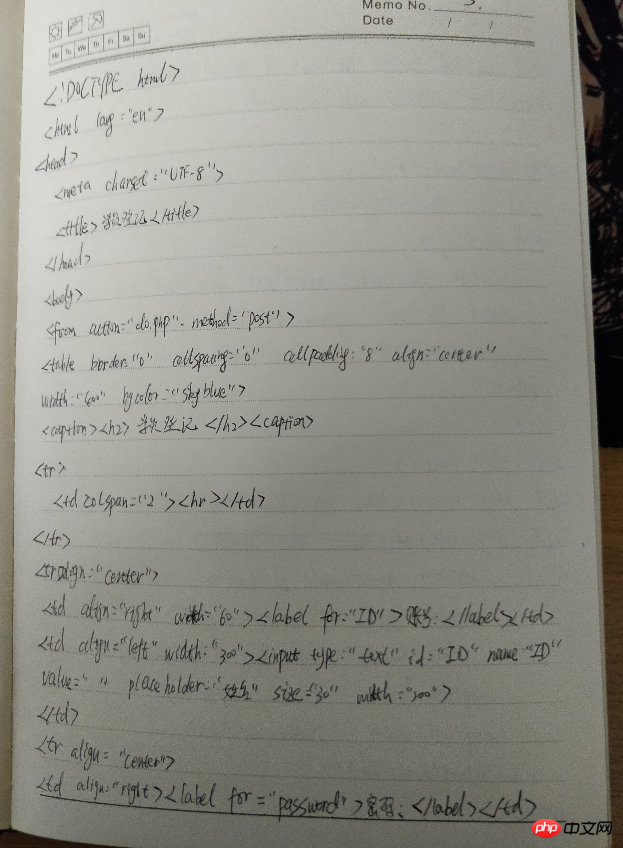 Memo No. 3.
Date / /
Mo Tu We Th Fr Sa Su
<!DOCTYPE html>
<html lang="en">
<head>
<meta charset="UTF-8">
<title>学员登记</title>
</head>
<body>
<from action="do.php". method="post">
<table border="0" cellspacing="0" cellpadding="8" align="center"
width="600" bgcolor="skyblue">
<caption><h2>学员登记</h2><caption>
<tr>
<td colspan="2"><hr></td>
</tr>
<tr align="center">
<td align="right" width="60"><label for="ID">账号:</label></td>
<td align="left" width="300"><input type="text" id="ID" name="ID"
value=" " placeholder="姓名" size="30" width="300">
</td>
<tr align="center">
<td align="right"><label for="password">密码:</label></td>
php 中文网